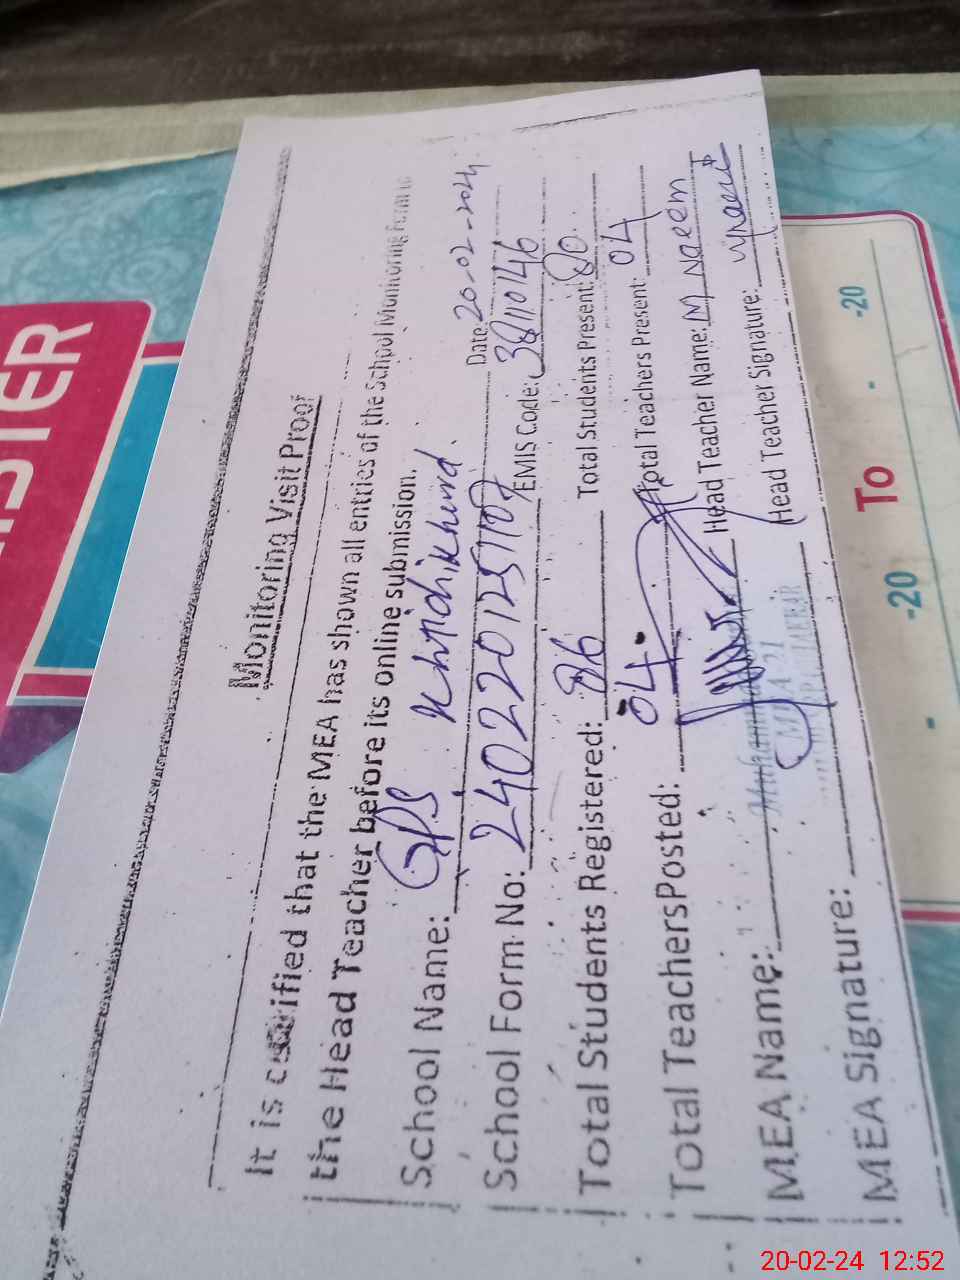 Monitoring Visit Proof
It is certified that the MEA has shown all entries of the School Monitoring Form to
the Head Teacher before its online submission.
School Name: GPS Khindikhurd Date: 20-02-2024
School Form No: EMIS Code:
Total Students Registered: 86 Total Students Present: 80
Total Teachers Posted: 04 Total Teachers Present: 04
MEA Name: Head Teacher Name: M Naeem
MEA 21
MEA Signature: Head Teacher Signature:
ISTER
To
-20 - -20
-
20-02-24 12:52